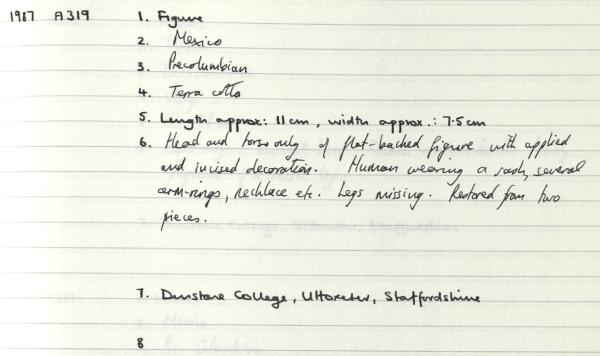 1987 A319 1. Figure
2. Mexico
3. Precolumbian
4. Terra cotta
5. Length approx: 11cm, width approx.: 7.5cm
6. Head and torso only of flat-backed figure with applied
and incised decoration. Human wearing a sash, several
arm-rings, necklace etc. Legs missing. Restored from two
pieces.
7. Dunstone College, Uttoxeter, Staffordshire
8